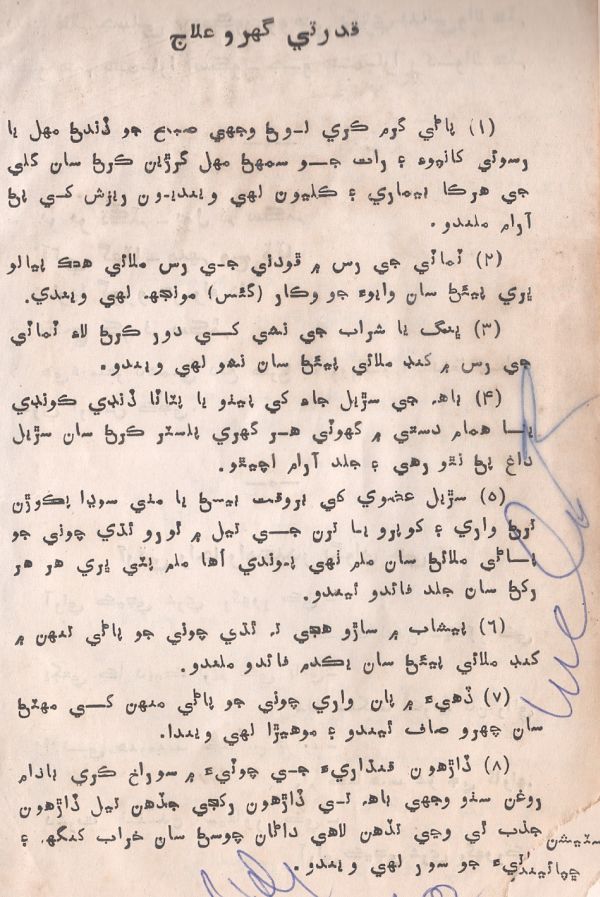 قدرتي گهرو علاج
(۱) پاڻي گرم ڪري لـوڻ وجهي صبح جو ڏندڻ مهل يا
رسوئي کانپوءِ ۽ رات جـو سمهڻ مهل گرڙيون ڪرڻ سان گلي
جي هرڪا بيماري ۽ ڪليون لهي وينديـون ريزش کـي پڻ
آرام ملندو.
(۲) ٽماٽي جي رس ۾ ڦودني جـي رس ملائي هڪ پيالو
ڀري پيئڻ سان وايوءَ جو وڪار (گئس) مونجهه لهي ويندي.
(۳) ڀنگ يا شراب جي نشي کـي دور ڪرڻ لاءِ ٽماٽي
جي رس ۾ کنڊ ملائي پيئڻ سان نشو لهي ويندو.
(۴) باهه جي سڙيل جاءِ کي پيٺو يا پٽاٽا ڏنڊي ڪونڊي
يـا همام دستي ۾ گهوٽي هـر گهري پلستر ڪرڻ سان سڙيل
داغ پڻ نٿو رهي ۽ جلد آرام اچيٿو.
(۵) سڙيل عضوي کي بروقت بيسڻ يا مٺي سوڊا پڪوڙن
ترڻ واري ۽ کوپرو يـا ترن جـي تيل ۾ ٿورو ٿڌي چوني جو
پـاڻي ملائڻ سان ملم ٺهي پـوندي اها ملم پٽي ڀري هر هر
رکڻ سان جلد فائدو ٿيندو.
(۶) پيشاب ۾ ساڙو هجي تہ ٿڌي چوني جو پاڻي تنهن ۾
کنڊ ملائي پيئڻ سان يڪدم فائدو ملندو.
(۷) ڏهيءَ ۾ پان واري چوني جو پاڻي منهن کـي مهٽڻ
سان چهرو صاف ٿيندو ۽ موهيڙا لهي ويندا.
(۸) ڏاڙهون قنڌاريءَ جـي چوٽيءَ ۾ سوراخ ڪري بادام
روغن سنو وجهي باهه تـي ڏاڙهون رکجي جڏهن تيل ڏاڙهون
جذب ٿي وڃي تڏهن لاهي داڻان چوسڻ سان خراب کنگهه ۽
ڇاتيءَ جو سور لهي ويندو.
سٽيشن